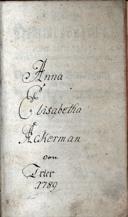 Anna
Elisabetha
Ackerman
von
Trier
1789